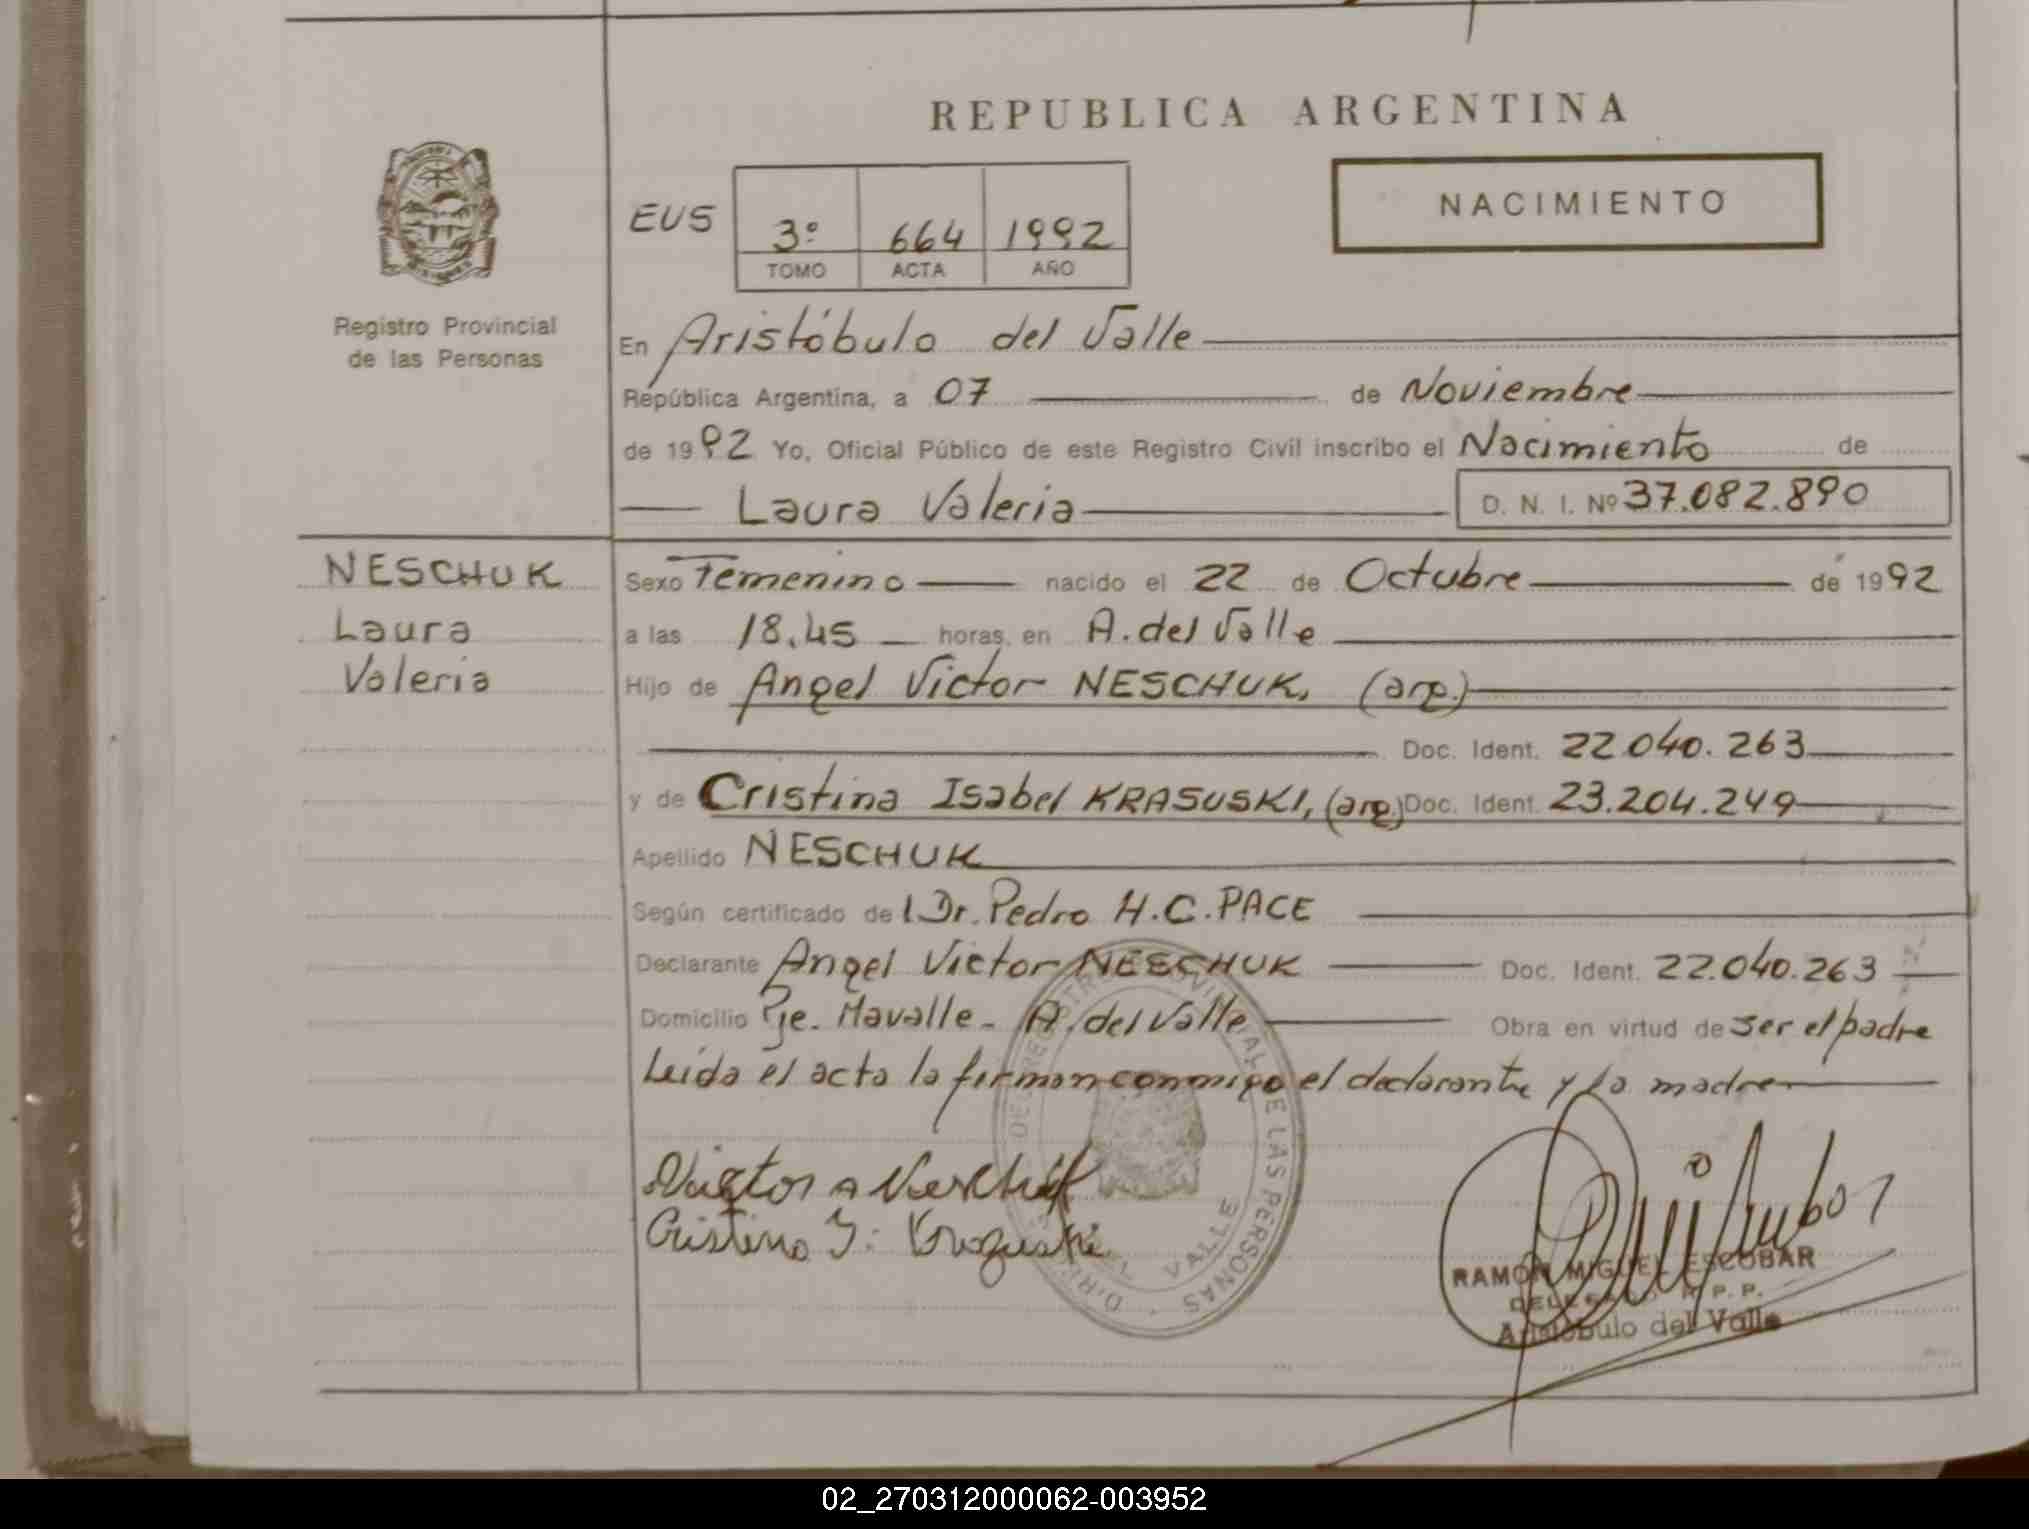 REPUBLICA ARGENTINA
NACIMIENTO
EUS 3º 664 1992
TOMO ACTA AÑO
Registro Provincial
de las Personas
En Aristóbulo del Valle
República Argentina, a 07 de Noviembre
de 1992 Yo, Oficial Público de este Registro Civil inscribo el Nacimiento de
Laura Valeria D. N. I. Nº 37.082.890
NESCHUK
Laura
Valeria
Sexo Femenino nacido el 22 de Octubre de 1992
a las 18.45 horas, en A. del Valle
Hijo de Angel Victor NESCHUK, (arg.)
Doc. Ident. 22.040.263
y de Cristina Isabel KRASUSKI, (arg.) Doc. Ident. 23.204.249
Apellido NESCHUK
Según certificado del Dr. Pedro H.C. PACE
Declarante Angel Victor NESCHUK Doc. Ident. 22.040.263
Domicilio Pje. Mavalle - A. del Valle Obra en virtud de ser el padre
Leída el acta la firman conmigo el declarante y la madre
DEL REGISTRO PROVINCIAL DE LAS PERSONAS
VALLE
RAMON MIGUEL ESCOBAR
DELEGADO R. P. P.
Aristóbulo del Valle
02_270312000062-003952